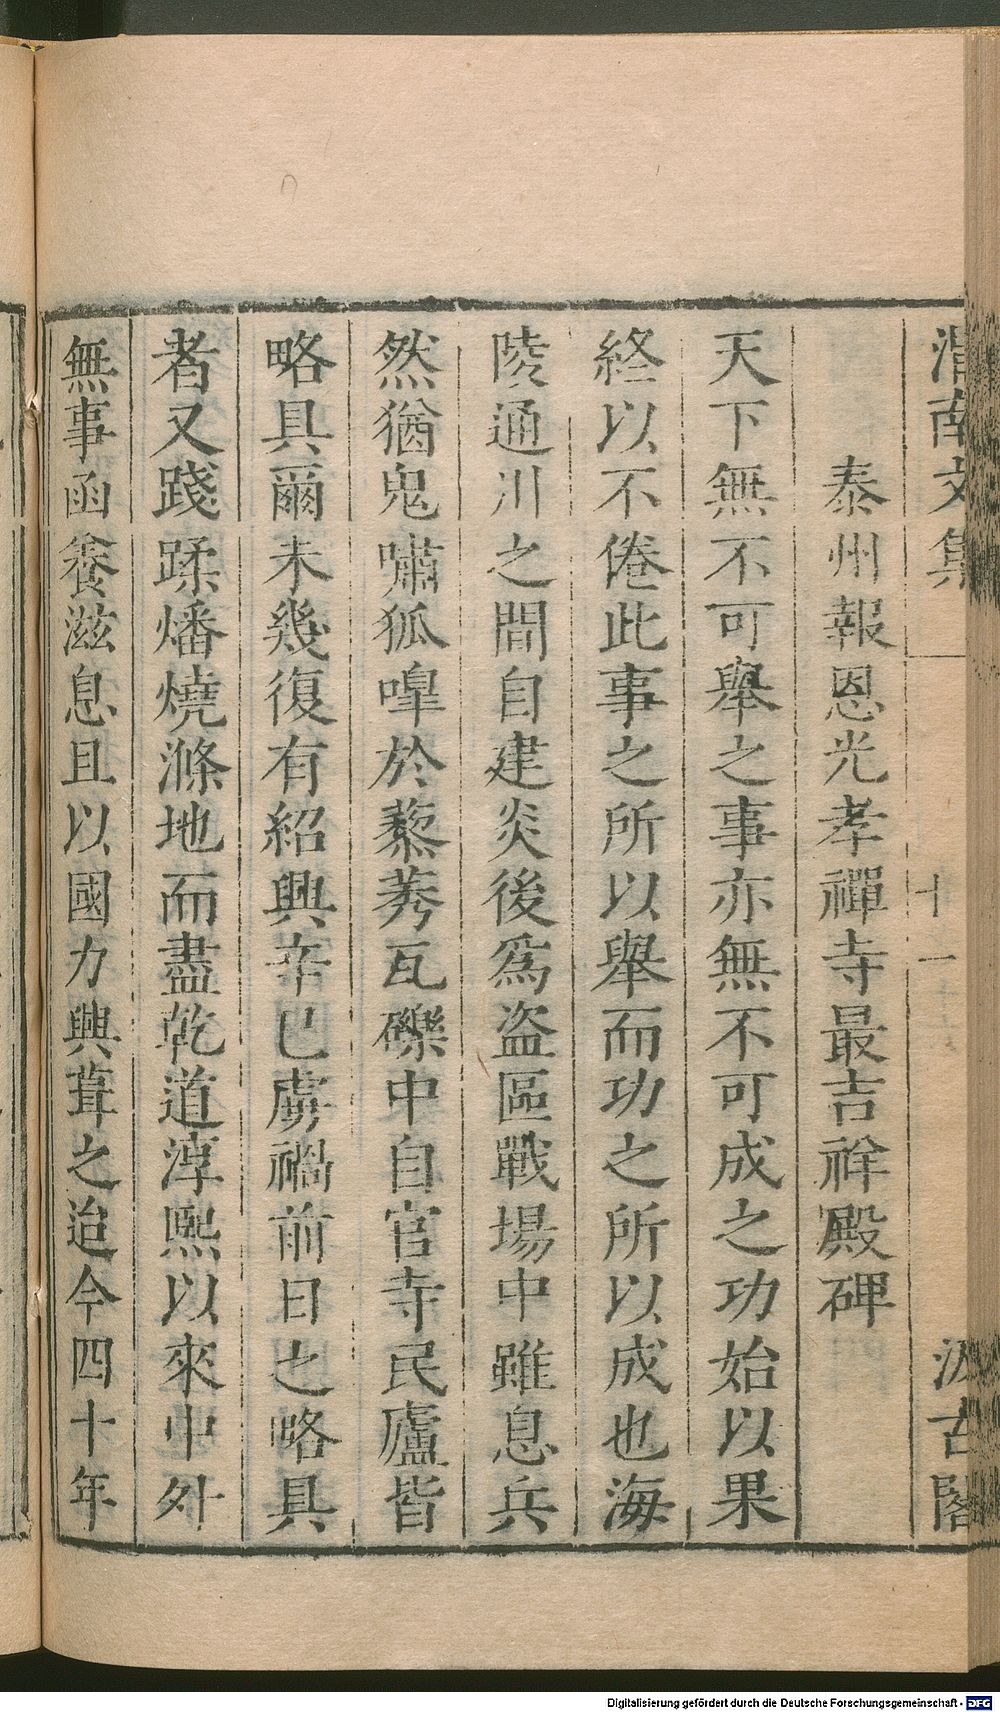 渭南文集　十一　汲古閣
泰州報恩光孝禪寺最吉祥殿碑
天下無不可舉之事亦無不可成之功始以果
終以不倦此事之所以舉而功之所以成也海
陵通川之間自建炎後爲盗區戰場中雖息兵
然猶鬼嘯狐嘷於藜莠瓦礫中自官寺民廬皆
略具爾未幾復有紹興辛巳虜禍前日之略具
者又踐蹂燔燒滌地而盡乾道淳熙以來中外
無事函養滋息且以國力興葺之迨今四十年
Digitalisierung gefördert durch die Deutsche Forschungsgemeinschaft - DFG